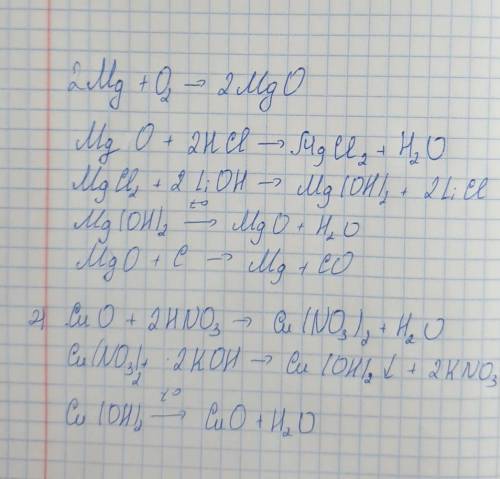 2Mg + O₂ → 2MgO
MgO + 2HCl → MgCl₂ + H₂O
MgCl₂ + 2LiOH → Mg(OH)₂ + 2LiCl
Mg(OH)₂ t° → MgO + H₂O
MgO + C → Mg + CO
2) CuO + 2HNO₃ → Cu(NO₃)₂ + H₂O
Cu(NO₃)₂ + 2KOH → Cu(OH)₂↓ + 2KNO₃
Cu(OH)₂ t° → CuO + H₂O